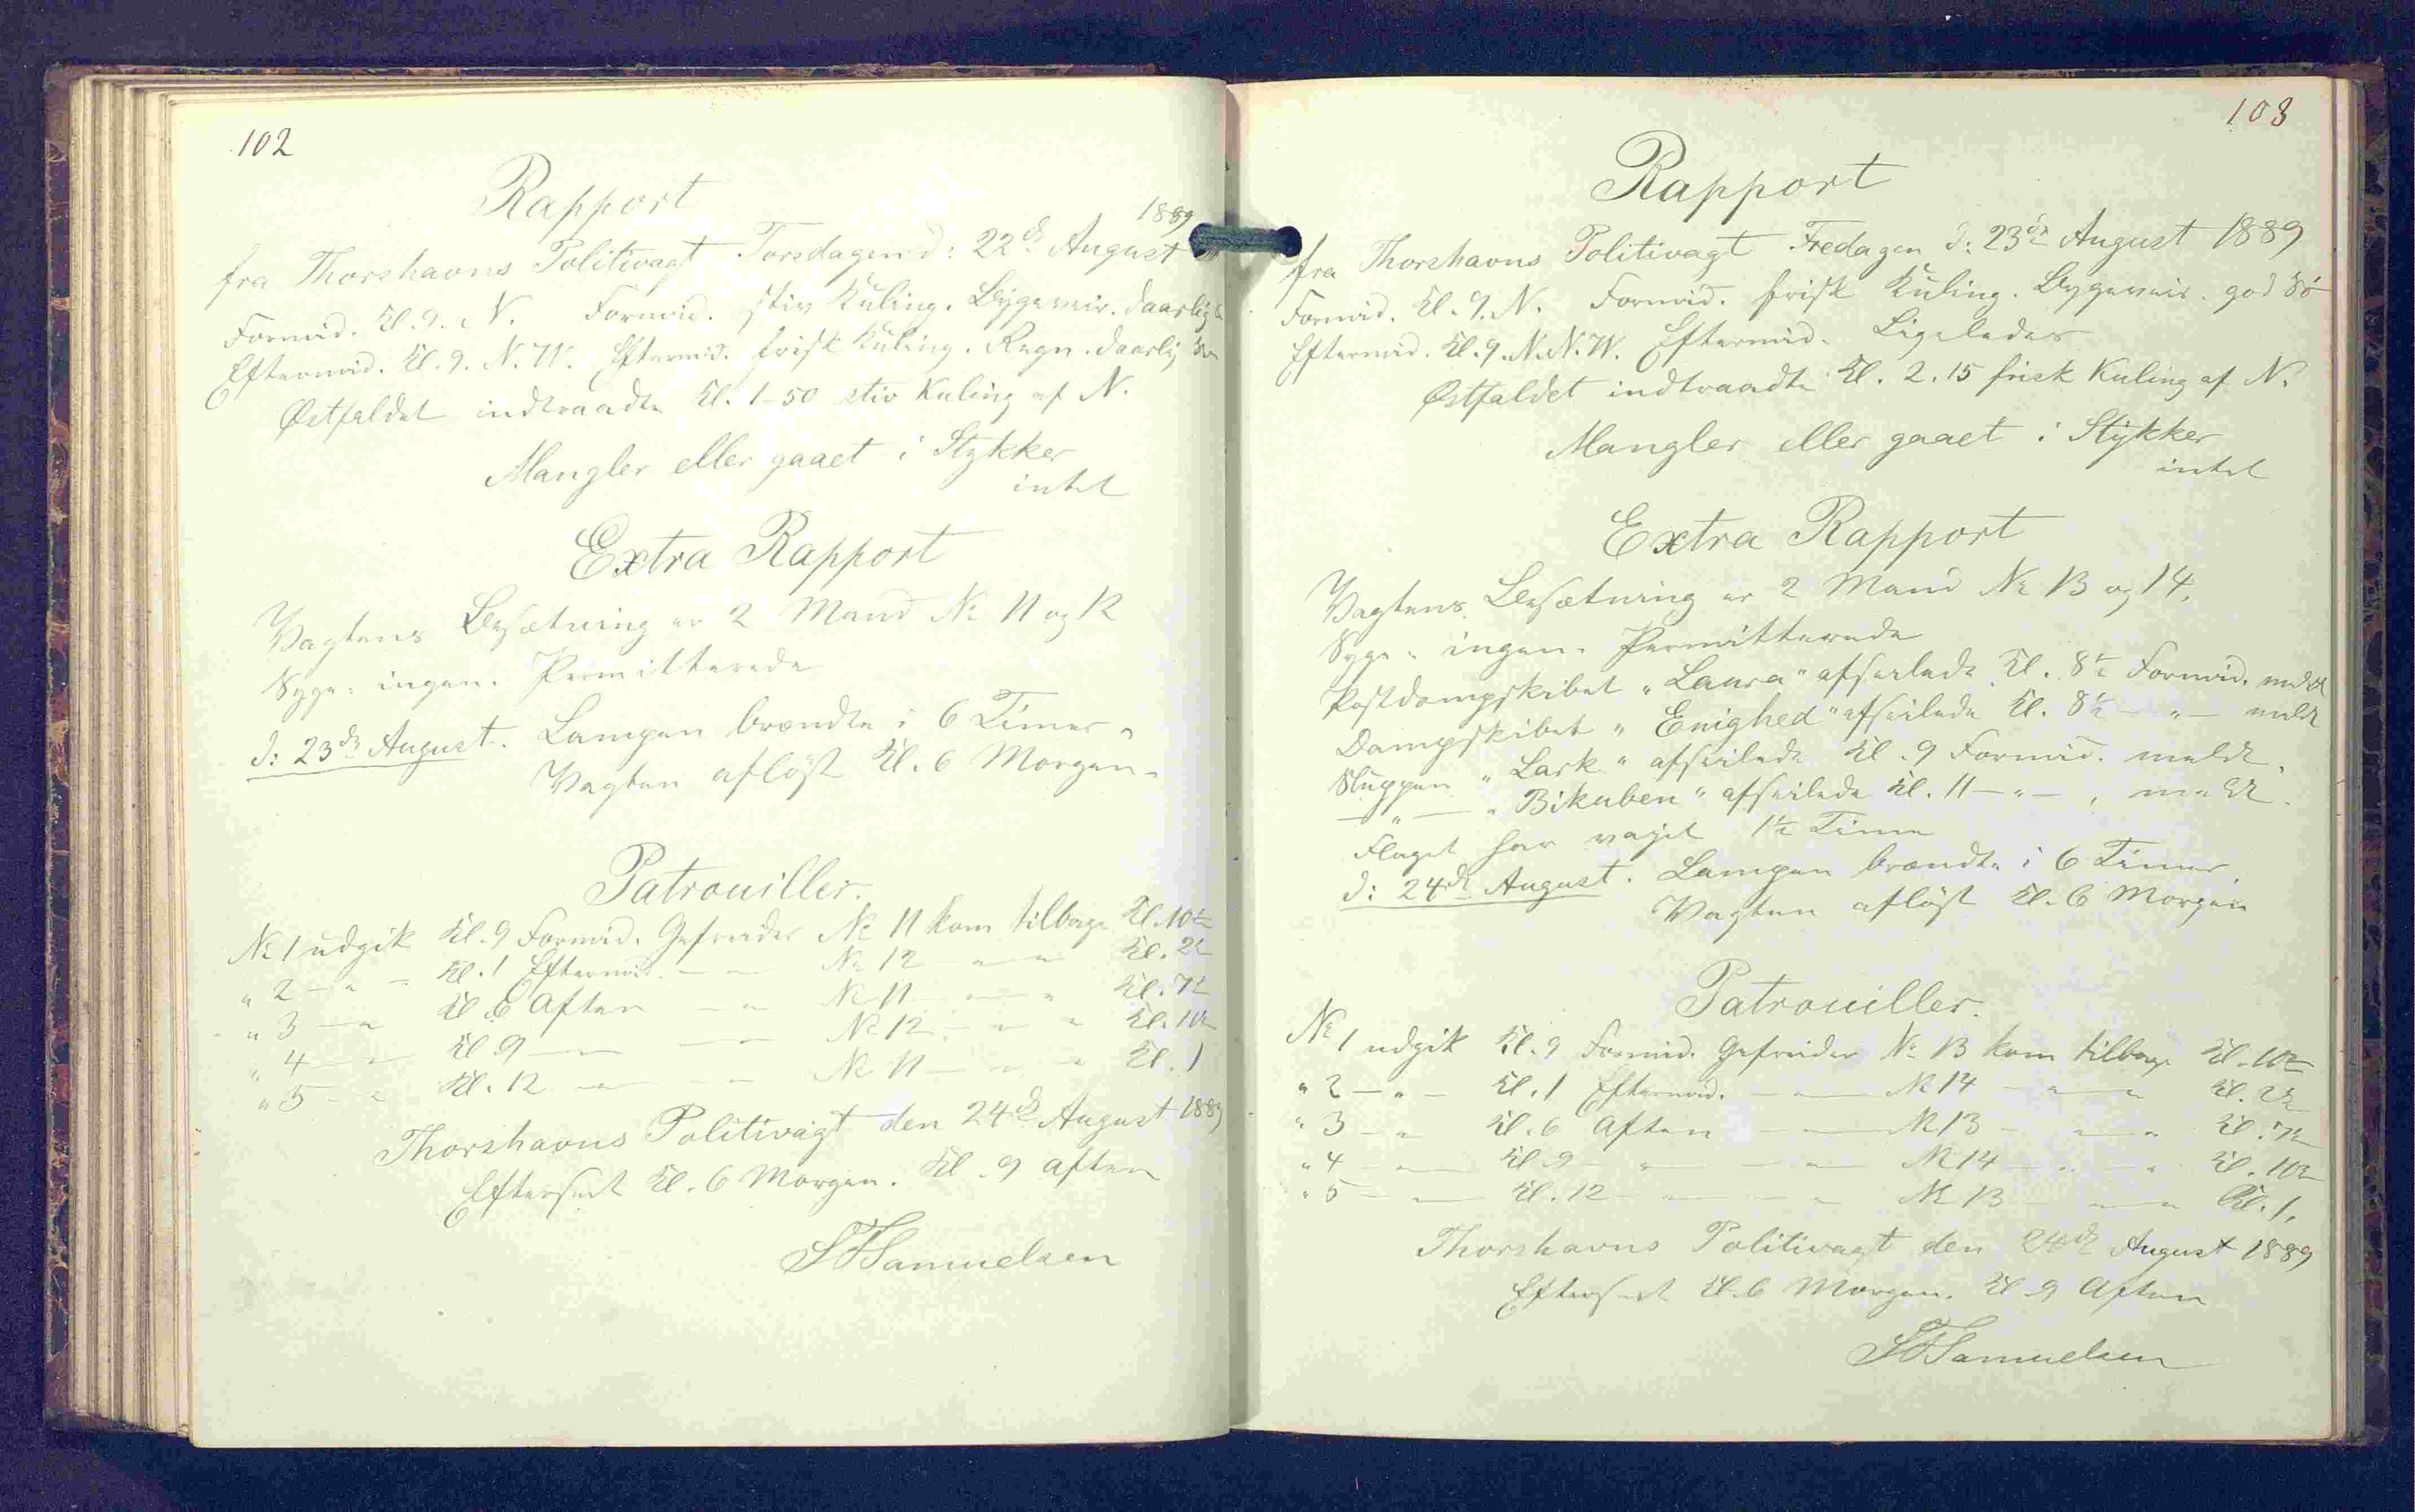 102
Rapport
1889
fra Thorshavns Politivagt Torsdagen d: 22de August
Formid. Kl. 9. N. Formid. stiv Kuling. Bygeveir. daarlig
Eftermid. Kl. 9. N. W. Eftermid. frisk Kuling. Regn. daarlig Sö
Østfaldet indtraadte Kl. 1-50 stiv Kuling af N.
Mangler eller gaaet i Stykker
intet
Extra Rapport
Vagtens Besætning er 2 Mand No 11 og 12
Syge: ingen. Permitterede
d: 23de August. Lampen brændte i 6 Timer.
Vagten aflöst Kl. 6 Morgen.
Patrouiller.
No 1 udgik Kl. 9 Formid. Gefreider No 11 kom tilbage Kl. 10½
" 2 — " — Kl. 1 Eftermid. — " — No 12 — " — " Kl. 2½
" 3 — " Kl. 6 Aften — " No 11 — " — " Kl. 7½
" 4 — " — Kl 9 — " — — " — No 12 — " — " Kl. 10½
" 5 — " Kl. 12 — " — — " No 11 — " — " Kl. 1
Thorshavns Politivagt den 24de August 1889
Efterseet Kl. 6 Morgen. Kl. 9 Aften
SFSamuelsen
103
Rapport
fra Thorshavns Politivagt Fredagen d: 23de August 1889
Formid. Kl. 9. N. Formid. frisk Kuling. Bygeveir. god Sö
Eftermid. Kl. 9. N.N.W. Eftermid. Ligeledes
Østfaldet indtraadte Kl. 2.15 frisk Kuling af N.
Mangler eller gaaet i Stykker
intet
Extra Rapport
Vagtens Besætning er 2 Mand No 13 og 14.
Syge: ingen. Permitterede
Postdampskibet "Laura" afseilede Kl. 8½ Formid. meldt
Dampskibet "Enighed" afseilede Kl. 8½ — " — meldt
Sluppen "Lark" afseilede Kl. 9 Formid. meldt.
— " — "Bikuben" afseilede Kl. 11 — " —, meldt.
Flaget har vajet 1½ Time
d: 24de August. Lampen brændte i 6 Timer.
Vagten aflöst Kl. 6 Morgen
Patrouiller.
No 1 udgik Kl. 9 Formid. Gefreider No 13 kom tilbage Kl. 10½
" 2 — " — Kl. 1 Eftermid. — " — No 14 — " — " Kl. 2½
" 3 — " Kl. 6 Aften — " — No 13 — " — " Kl. 7½
" 4 — " — Kl 9 — " — — " — No 14 — " — " Kl. 10½
" 5 — " — Kl. 12 — " — — " No 13 — " — " Kl. 1.
Thorshavns Politivagt den 24de August 1889
Efterseet Kl. 6 Morgen. Kl 9 Aften
SFSamuelsen